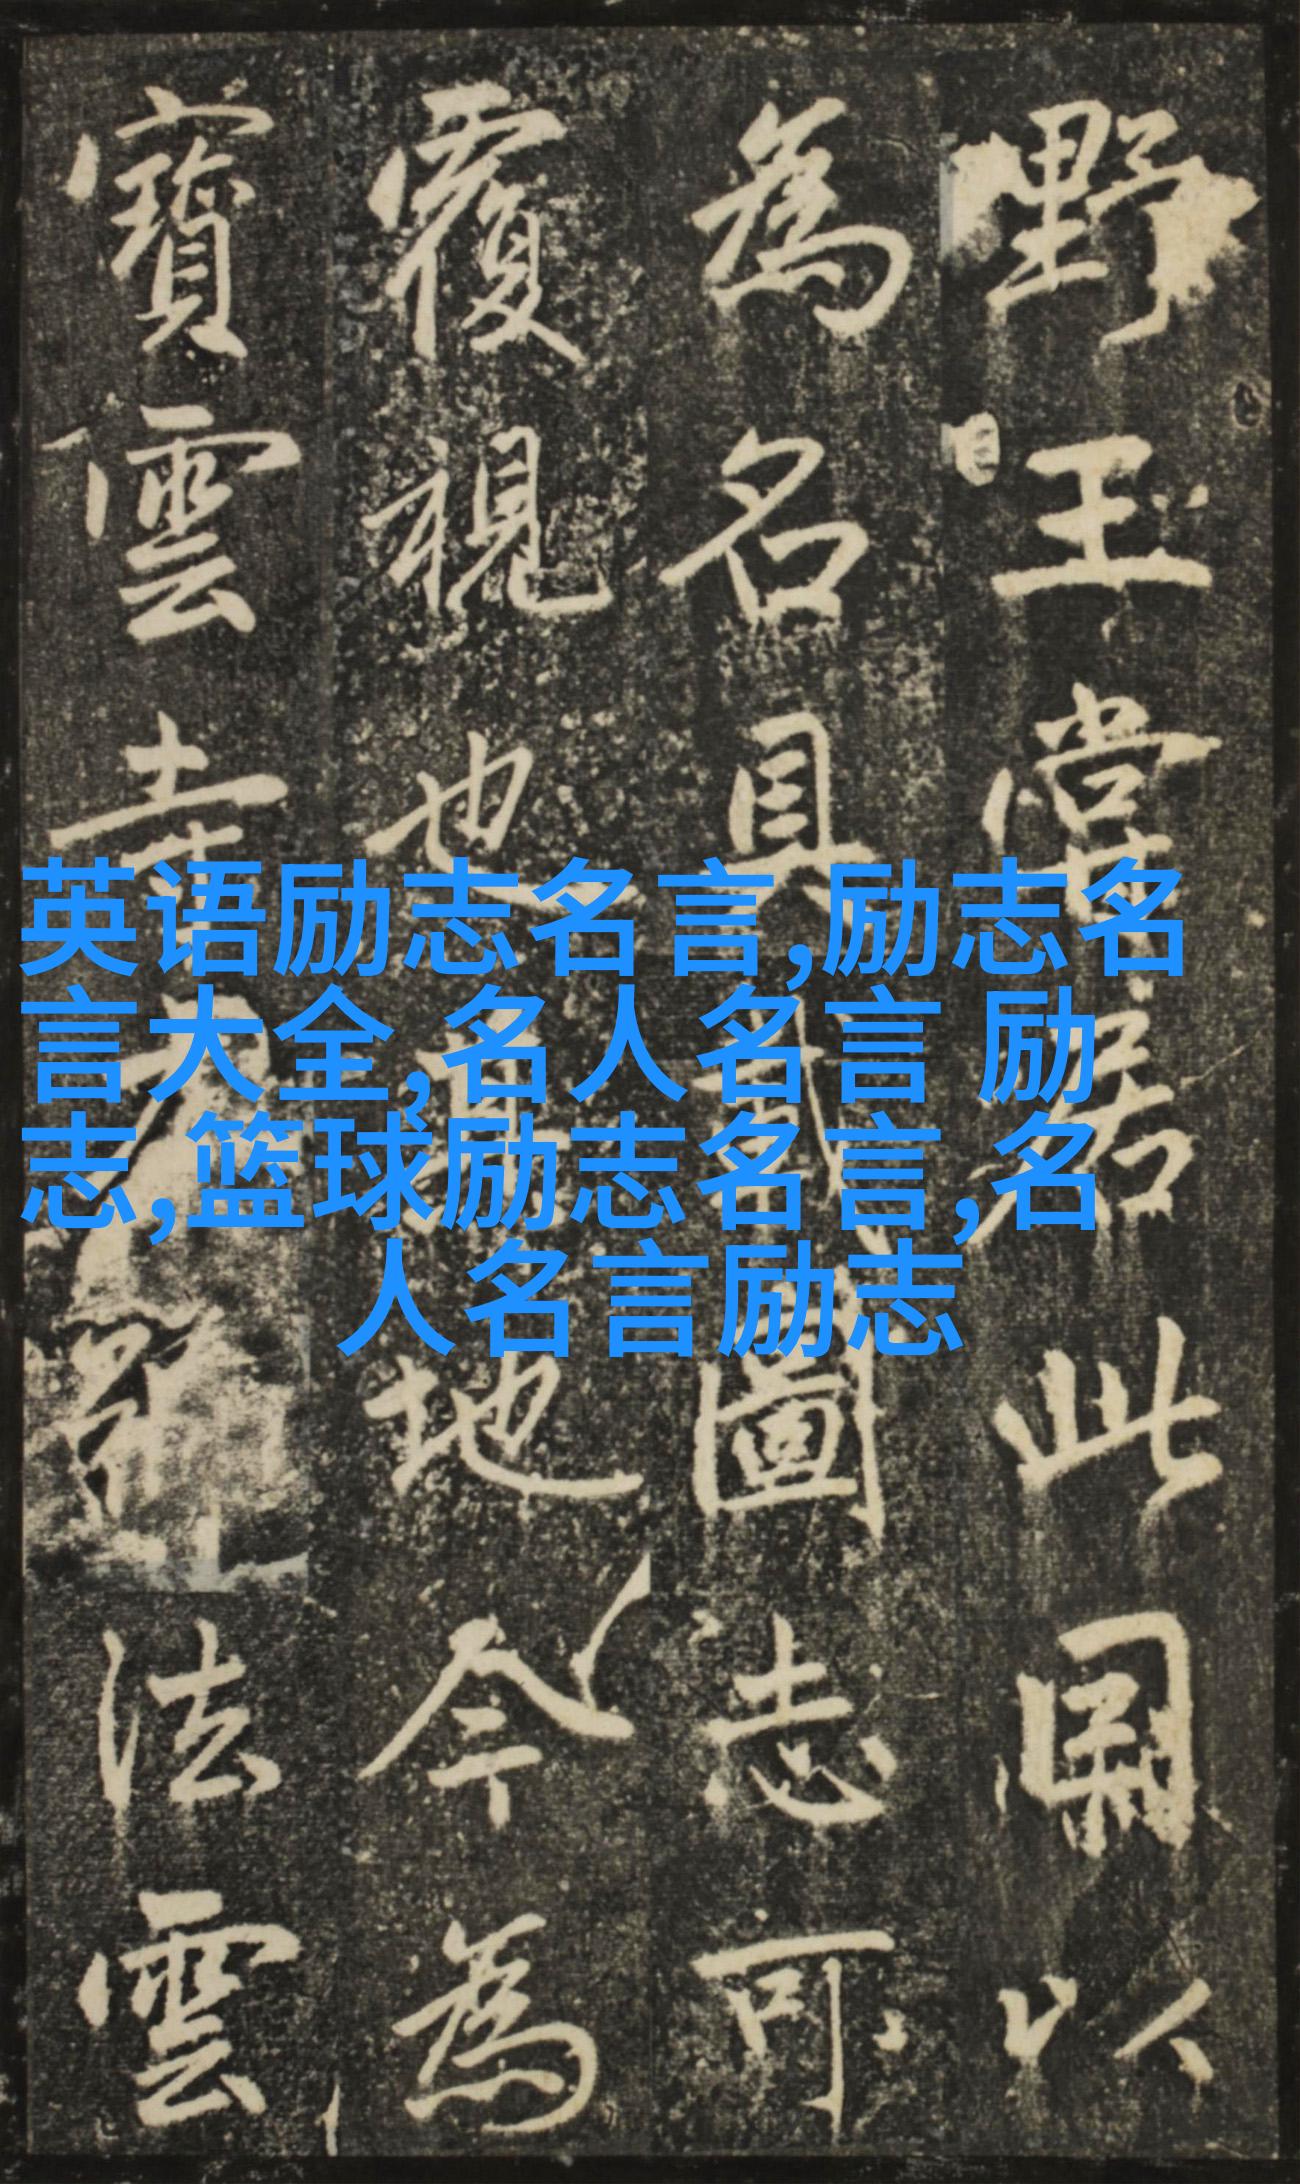 野王嘗居此以
為名具圖志可
覆視也地今為
寶雲寺法雲
英语励志名言,励志名
言大全,名人名言 励
志,篮球励志名言,名
人名言励志